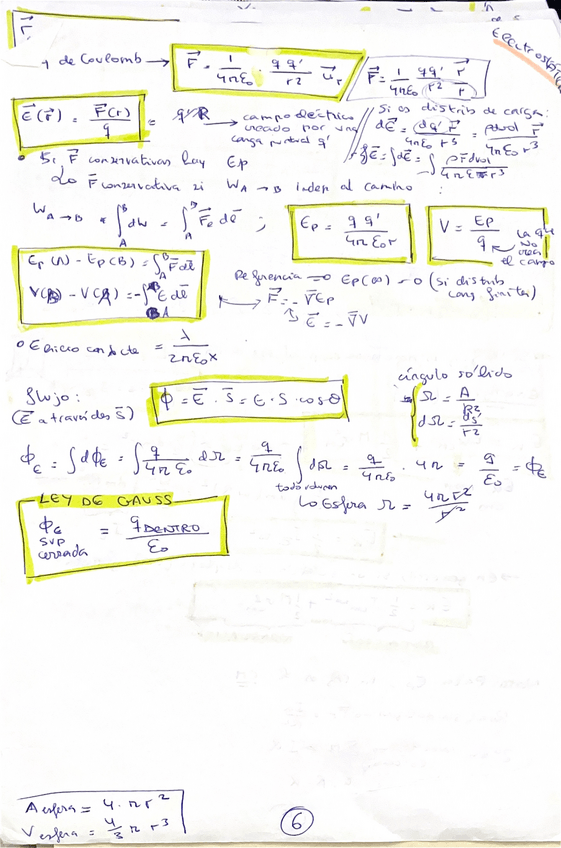 ELECTROSTÁTICA
de Coulomb → F⃗ = 1/4πε₀ · q q'/r² u⃗r / F⃗ = 1/4πε₀ q q'/r² r⃗/r
E⃗(r⃗) = F⃗(r)/q = → campo eléctrico creado por una carga puntual q'
Si es distrib de carga:
dE⃗ = dq' r⃗/4πε₀ r³ = ρdvol r⃗/4πε₀ r³
E⃗ = ∫dE⃗ = ∫ ρ r⃗ dvol/4πε₀ r³
• Si F⃗ conservativas hay Ep
↳ F⃗ conservativa si W A→B indep al camino :
W A→B = ∫_A^B dW = ∫_A^B F⃗e dl⃗ ; Ep = q q'/4πε₀r V = Ep/q ← la que no crea el campo
Ep(A) - Ep(B) = ∫_A^B F⃗ dl⃗
V(B) - V(A) = -∫_A^B E⃗ dl⃗
Referencia ⇒ Ep(∞) = 0 (si distrib carg finitas)
F⃗ = -∇⃗Ep
E⃗ = -∇⃗V
• E hilo conducte = λ/2πε₀x
flujo:
(E⃗ a través de S⃗)
ϕ = E⃗ · S⃗ = E · S · cosθ
ángulo sólido
Ω = A/R²
dΩ = ds/r²
ϕE = ∫dϕE = ∫ q/4πε₀ dΩ = q/4πε₀ ∫ dΩ = q/4πε₀ · 4π = q/ε₀ = ϕE
↳ Esfera Ω = 4πr²/r²
LEY DE GAUSS
ϕE sup cerrada = q DENTRO/ε₀
A esfera = 4 · π r²
V esfera = 4/3 π r³
6